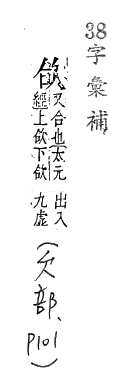 38字彙補
欱
又合也太元
經上欱下欱
出入
九虛
(欠部、P101)